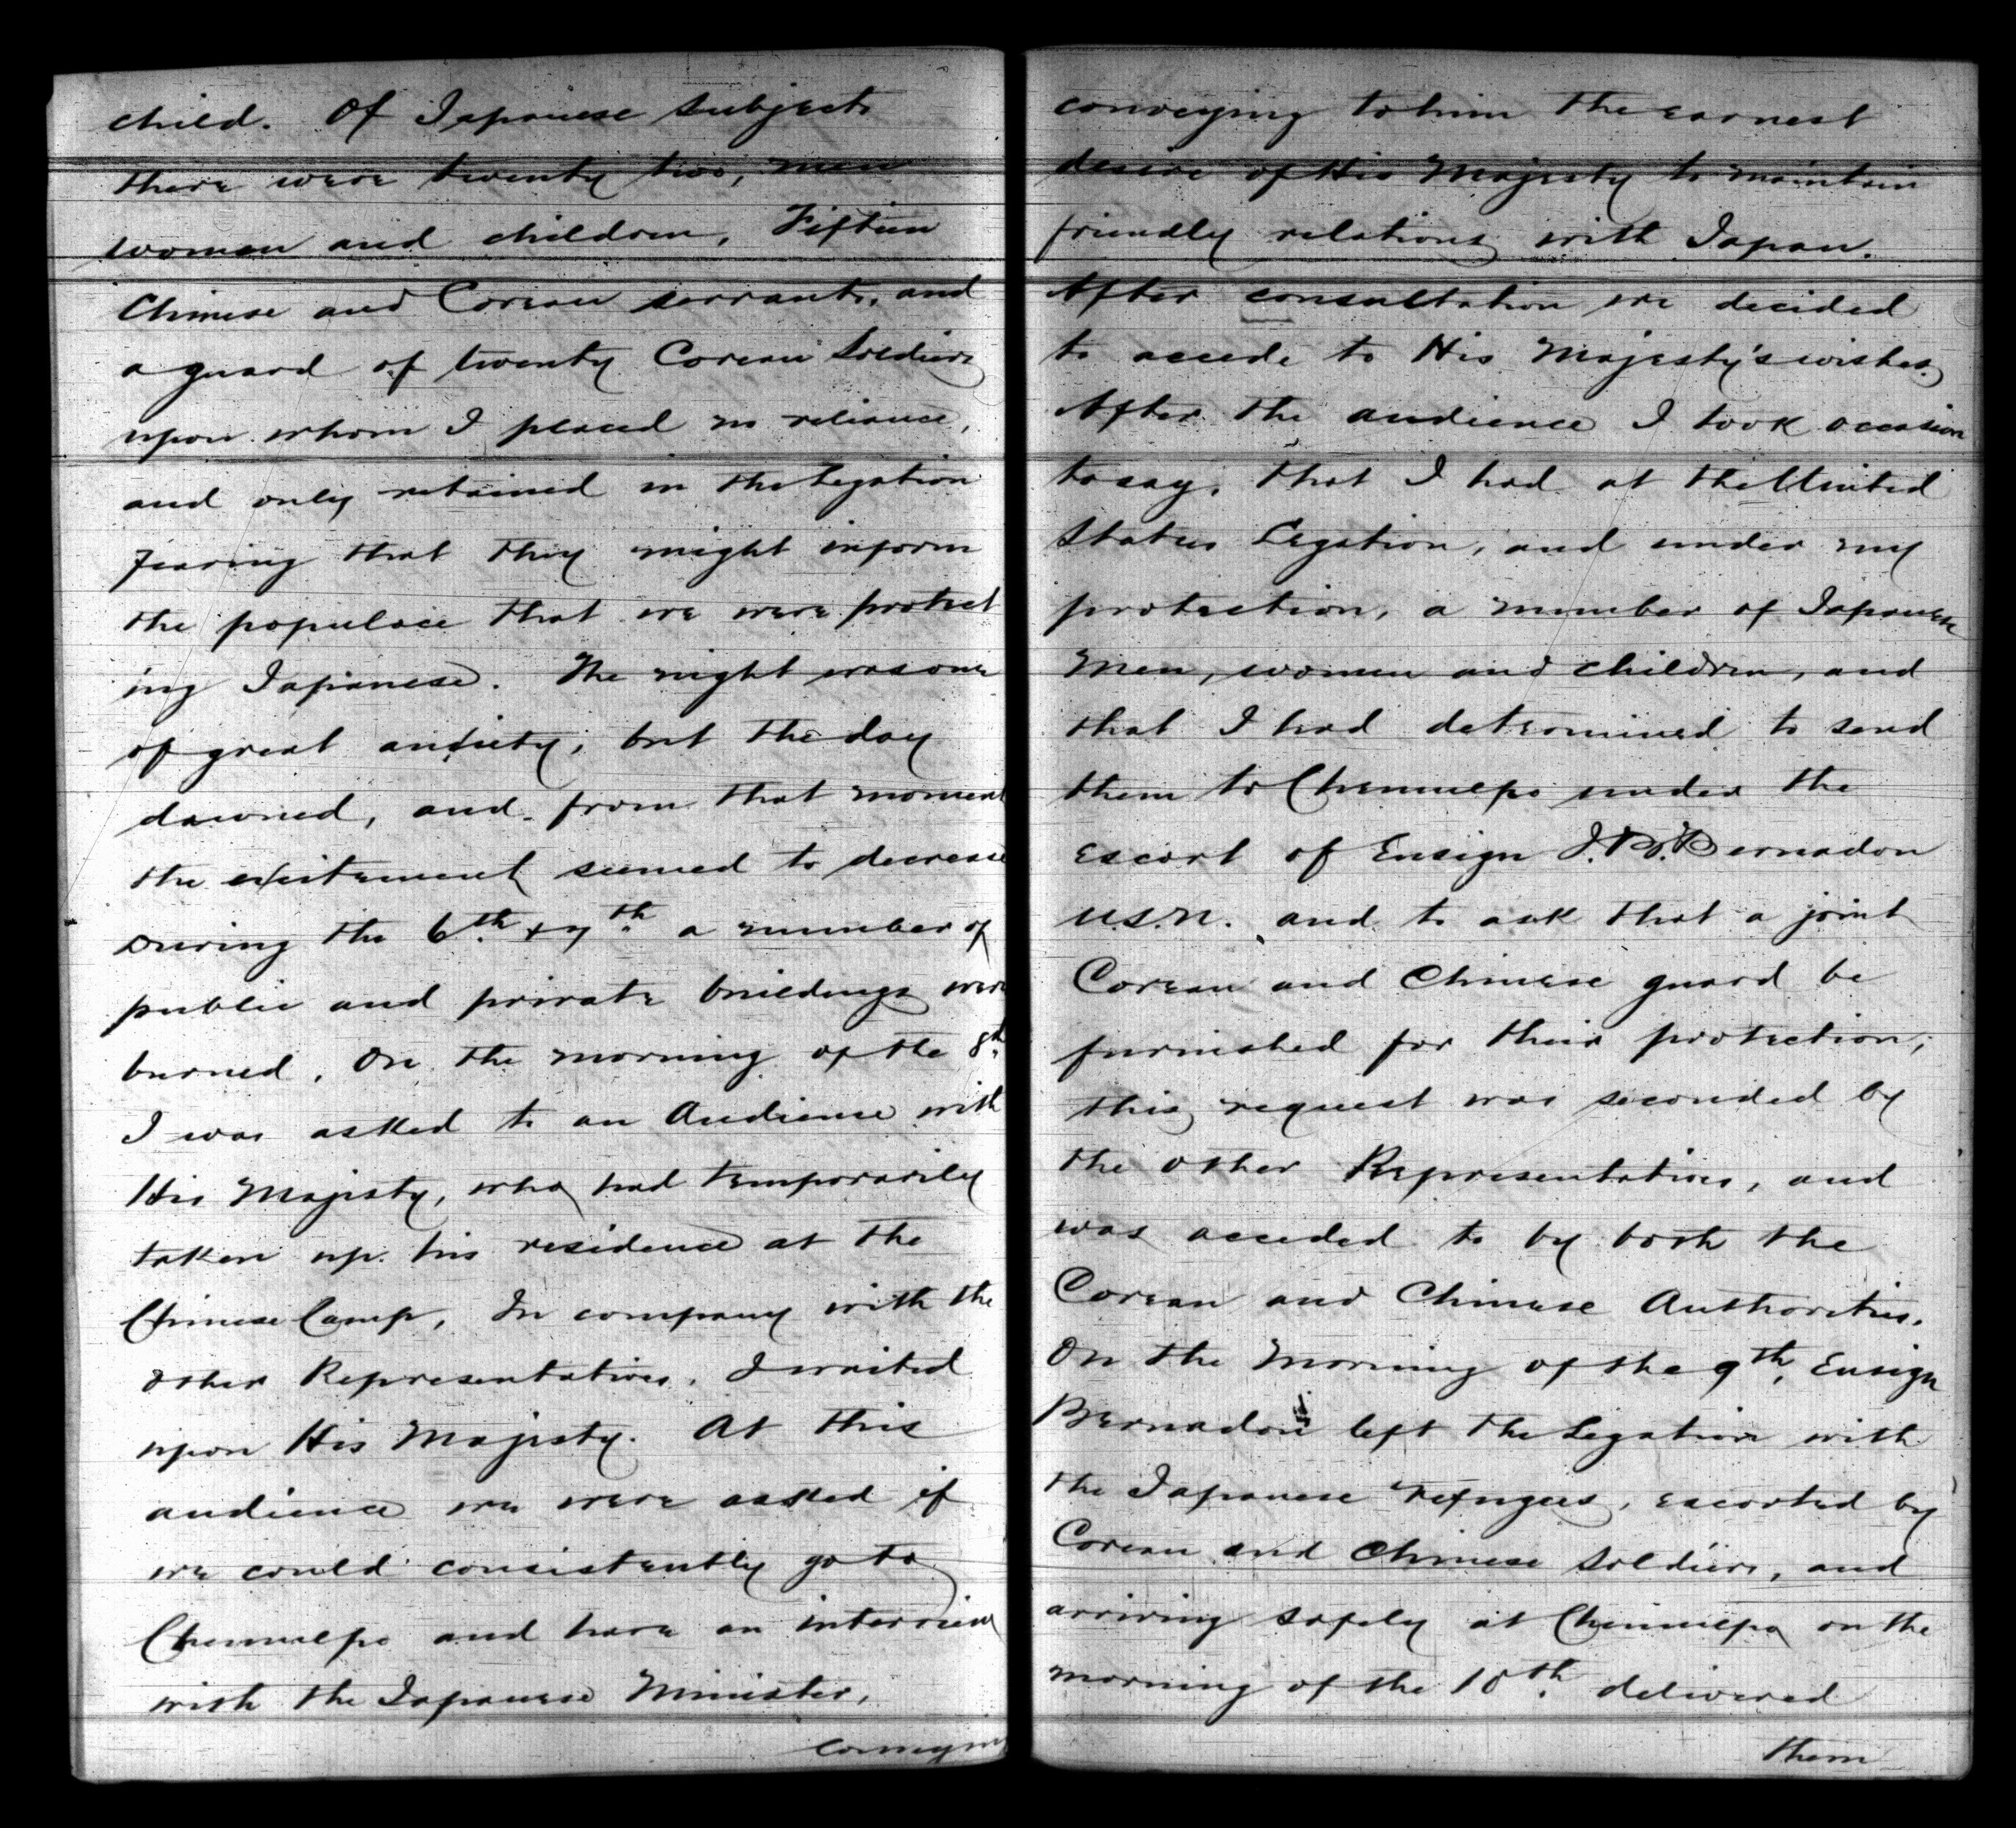 child. Of Japanese subjects
there were twenty two, men
women and children, Fifteen
Chinese and Corean servants, and
a guard of twenty Corean Soldiers
upon whom I placed no reliance,
and only retained in the Legation
fearing that they might inform
the populace that we were protect
ing Japanese. The night was one
of great anxiety, but the day
dawned, and from that moment
the excitement seemed to decrease
During the 6th & 7th a number of
public and private buildings were
burned. On the morning of the 8th
I was asked to an Audience with
His Majesty, who had temporarily
taken up his residence at the
Chinese Camp, In company with the
other Representatives, I waited
upon His Majesty. At this
audience we were asked if
we could consistently go to
Chemulpo and have an interview
with the Japanese Minister,
conveying
conveying to him the earnest
desire of His Majesty to maintain
friendly relations with Japan.
After consultation we decided
to accede to His Majesty's wishes.
After the audience I took occasion
to say, that I had at the United
States Legation, and under my
protection, a number of Japanese
Men, women and children, and
that I had determined to send
them to Chemulpo under the
escort of Ensign J.B. Bernadou
U.S.N. and to ask that a joint
Corean and Chinese guard be
furnished for their protection;
this request was seconded by
the other Representatives, and
was acceded to by both the
Corean and Chinese Authorities.
On the Morning of the 9th, Ensign
Bernadou left the Legation with
the Japanese refugees, escorted by
Corean and Chinese Soldiers, and
arriving safely at Chemulpo on the
morning of the 10th delivered
them